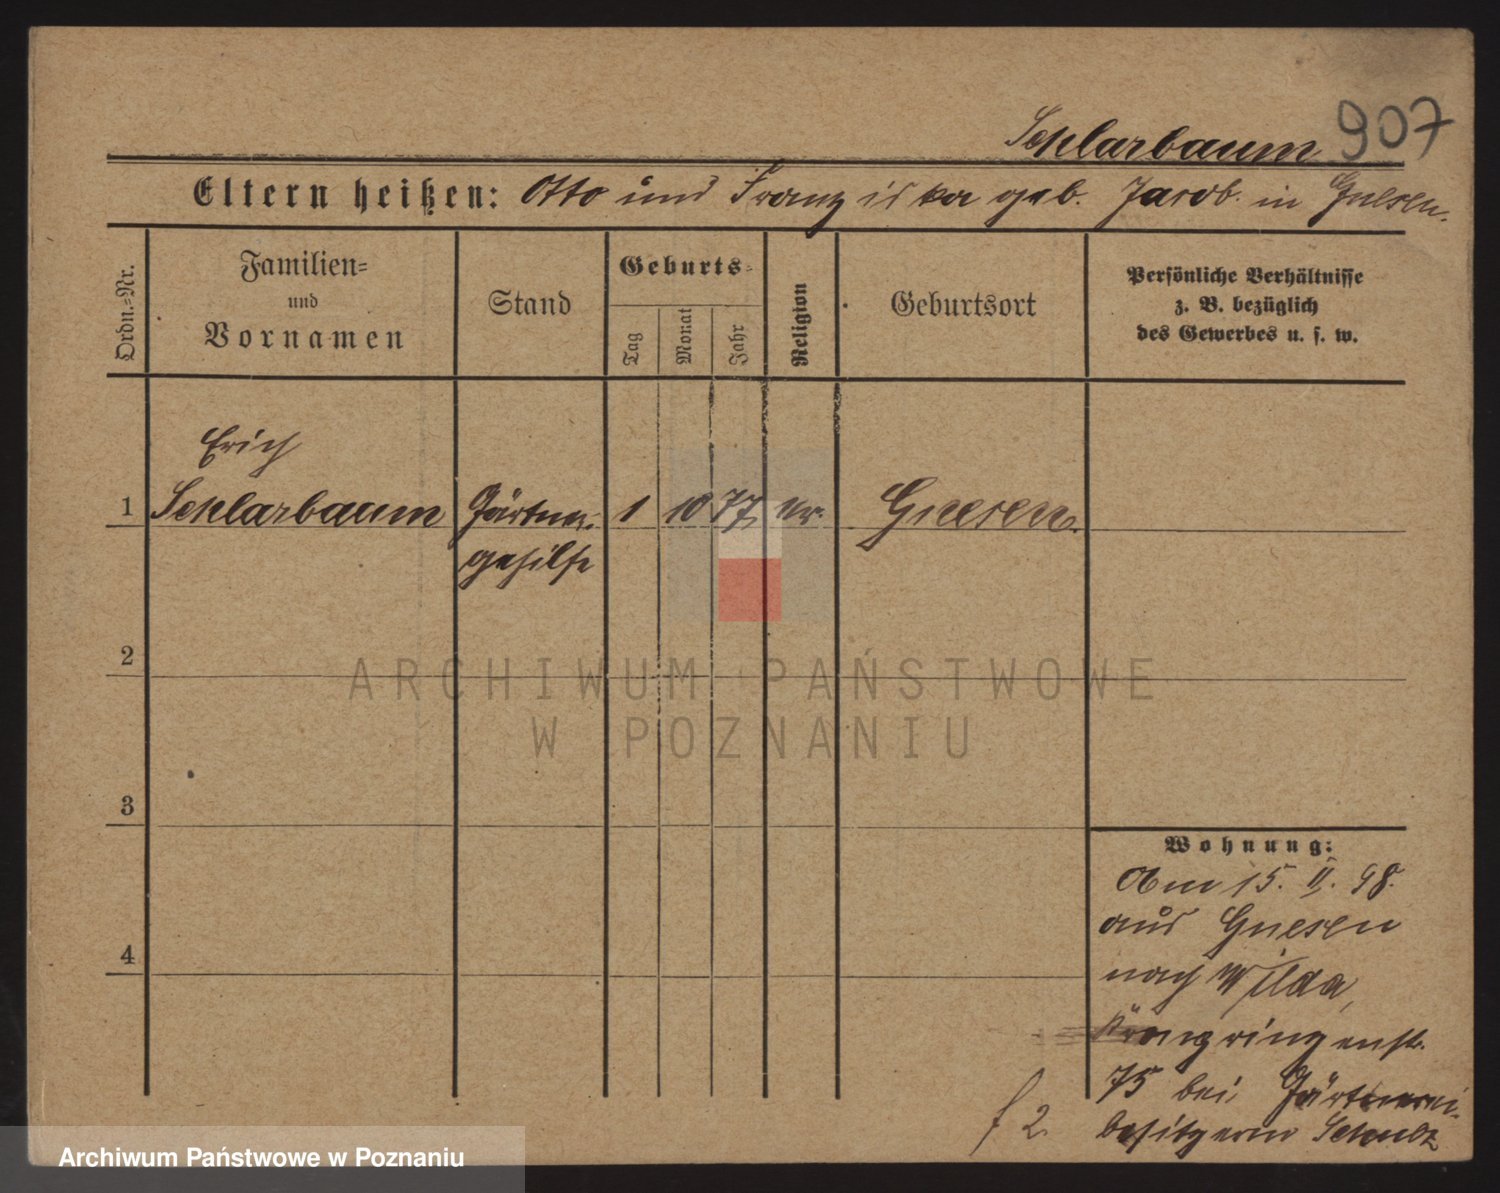 Schlarbaum 907
Eltern heißen: Otto und Franziska geb. Jacob. in Gnesen.
Ordn.-Nr.
Familien-
und
Vornamen
Stand
Geburts-
Tag
Monat
Jahr
Religion
Geburtsort
Persönliche Verhältnisse
z. B. bezüglich
des Gewerbes u. s. w.
Erich
1 Schlarbaum Gärtner- 1 10 77 Gnesen.
gehilfe
2
3
4
ARCHIWUM PAŃSTWOWE
W POZNANIU
Wohnung:
15. II. 98.
aus Gnesen
nach Wilda,
Kronprinzenstr.
75 bei Gärtnerei-
besitzerin Schulz
f 2.
Archiwum Państwowe w Poznaniu